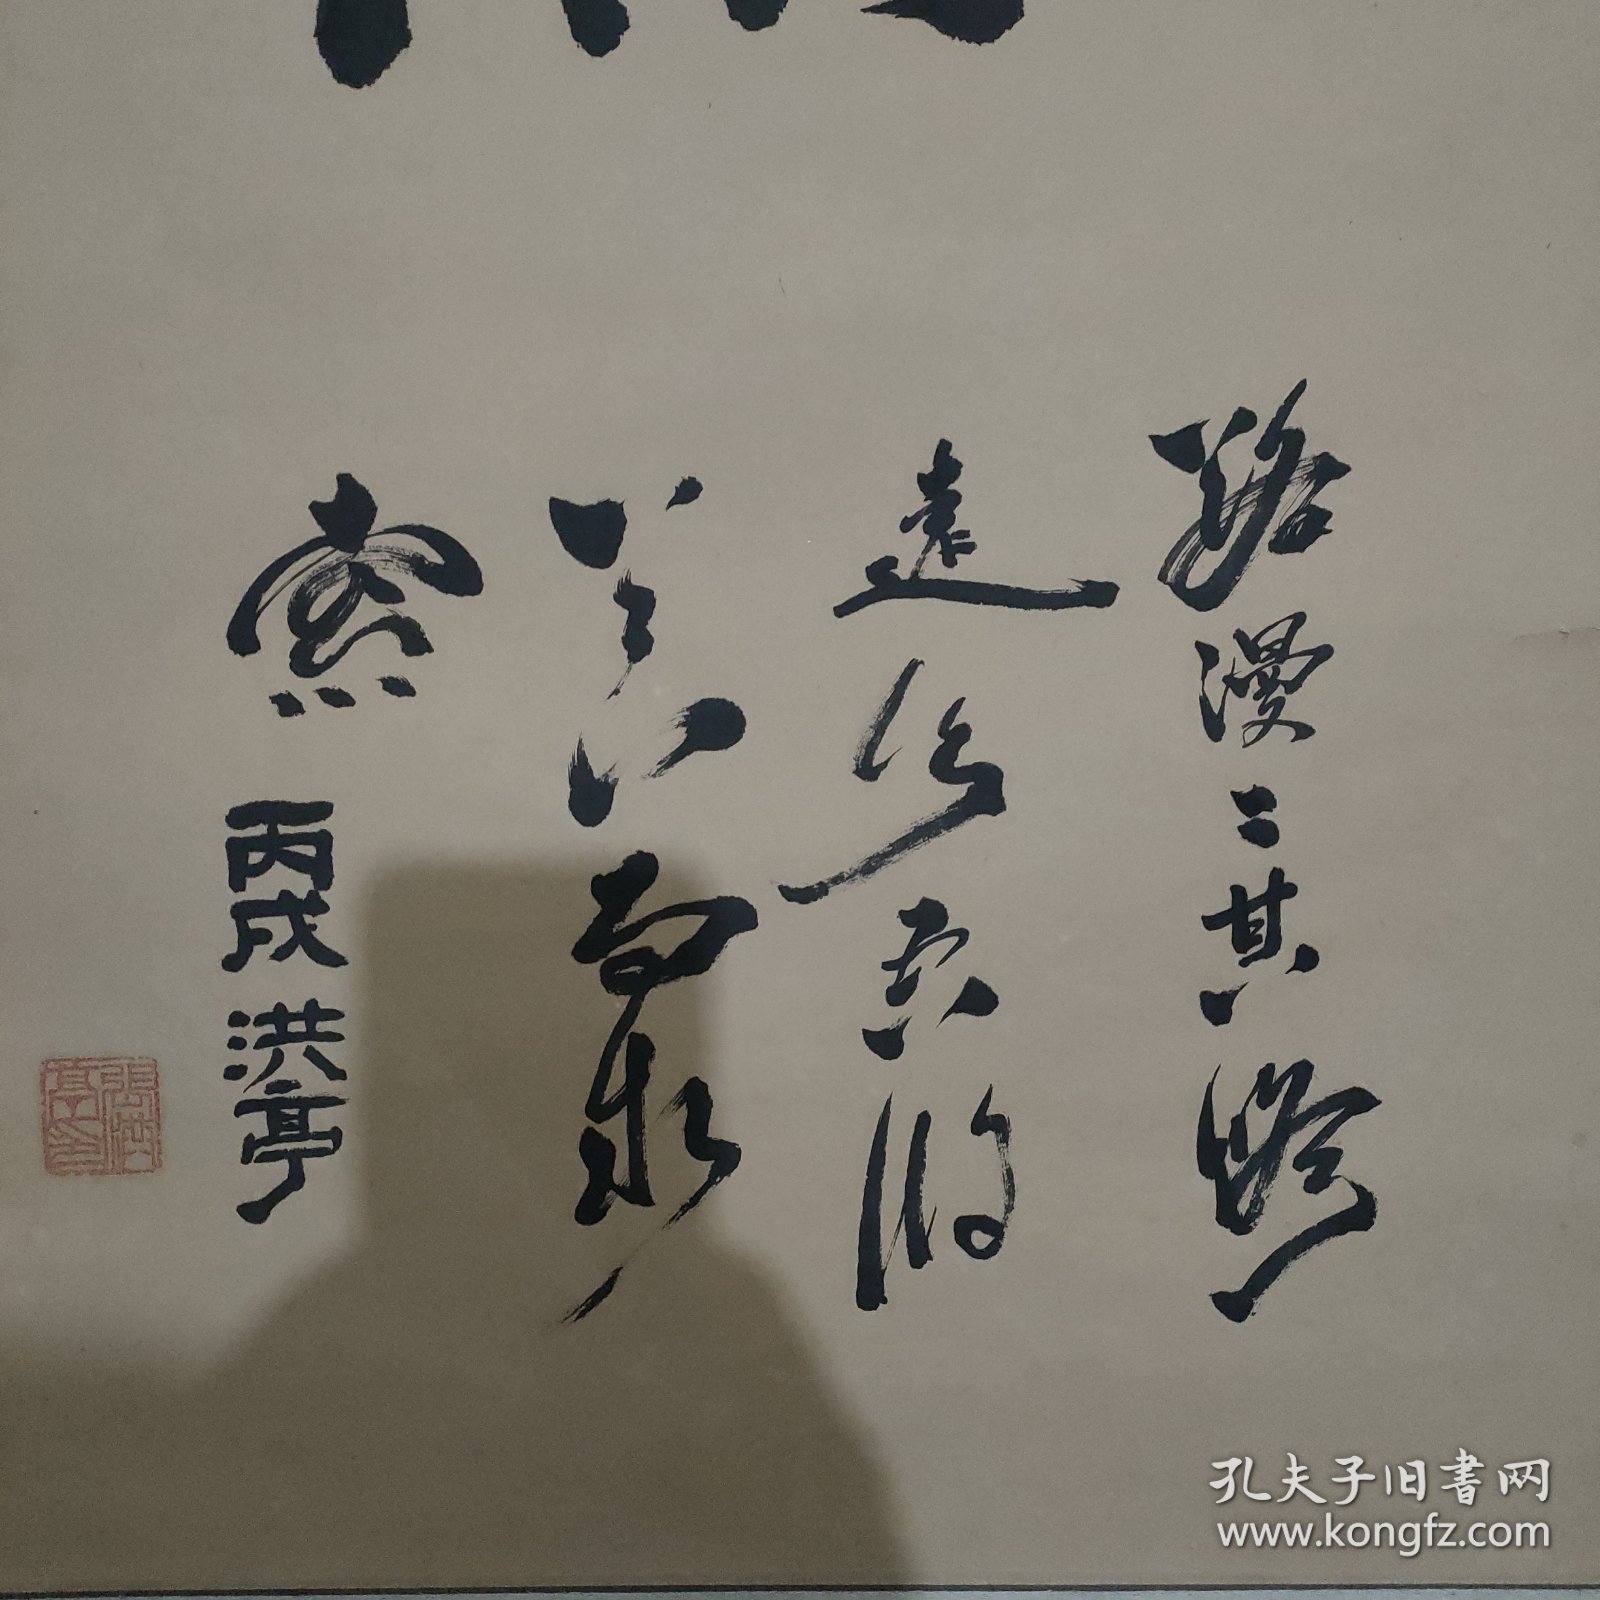 路漫〻其脩
遠兮吾將
上下而求
索 丙戌 洪亭
張洪亭印
孔夫子旧书网
www.kongfz.com